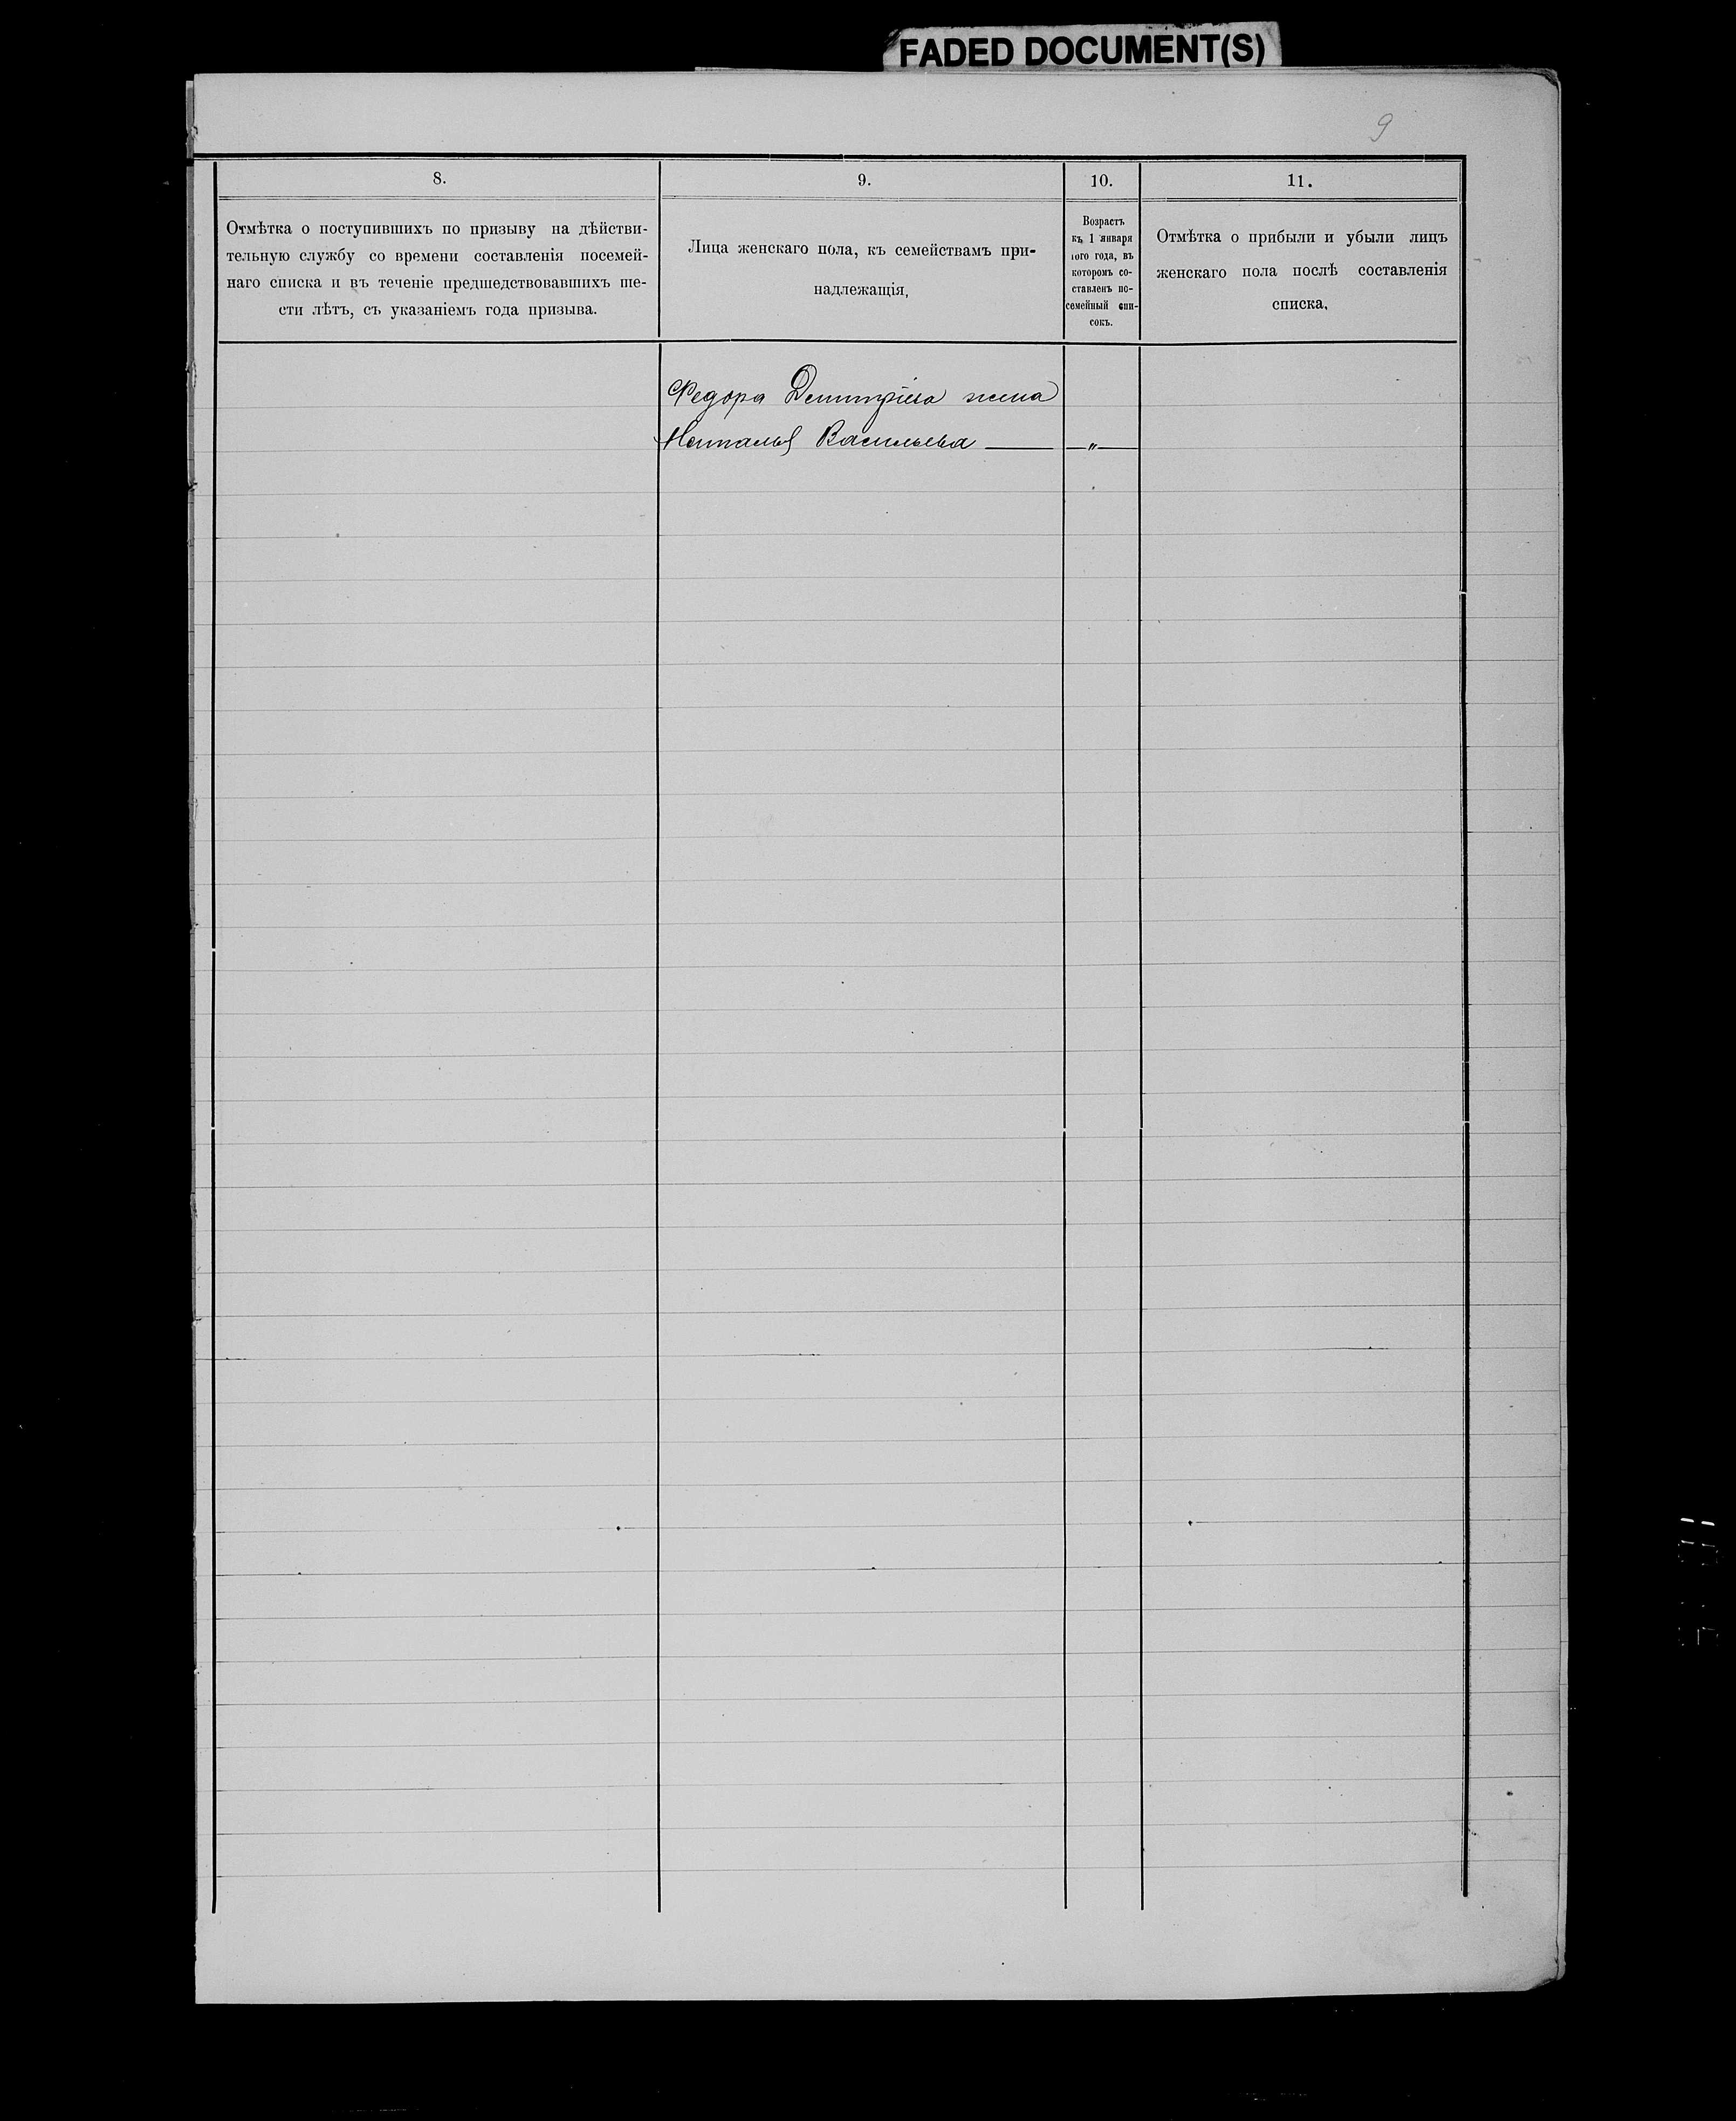 FADED DOCUMENT(S)
9
8.
9.
10.
11.
Отмѣтка о поступившихъ по призыву на дѣйстви-
тельную службу со времени составленія посемей-
наго списка и въ теченіе предшедствовавшихъ ше-
сти лѣтъ, съ указаніемъ года призыва.
Лица женскаго пола, къ семействамъ при-
надлежащія,
Возрастъ
къ 1 января
того года, въ
которомъ со-
ставленъ по-
семейный спи-
сокъ.
Отмѣтка о прибыли и убыли лицъ
женскаго пола послѣ составленія
списка,
Федора Дмитріева жена
Наталья Васильева — — „ —